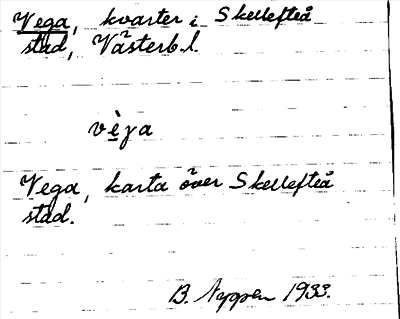 Vega, kvarter i Skellefteå
stad, Västerb. l.
vèga
Vega, karta över Skellefteå
stad.
B. 1933.